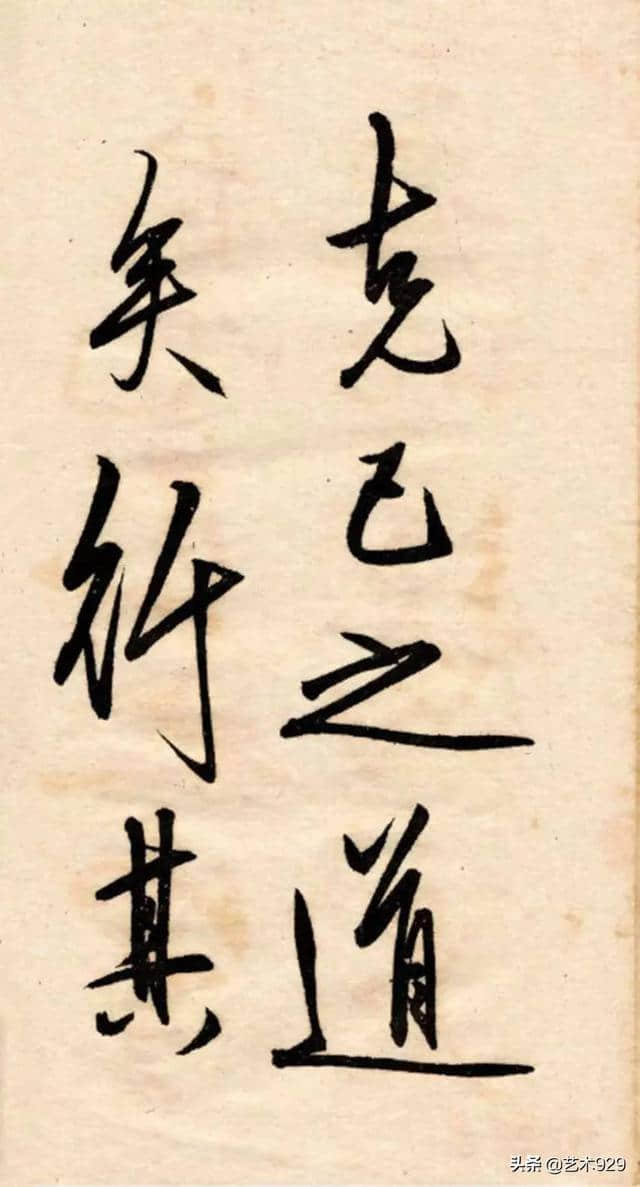 克己之道
矣行其
头条 @艺术929